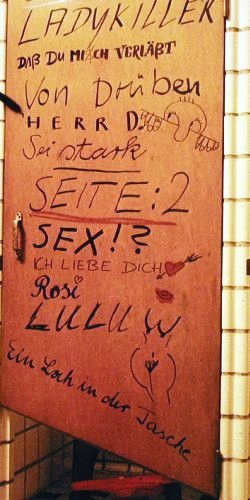 LADYKILLER
DAß DU MICH VERLÄßT
Von Drüben
HERR D.
Sei stark
SEITE:2
SEX!?
ICH LIEBE DICH
Rosi
LULU
Ein Loch in der Tasche